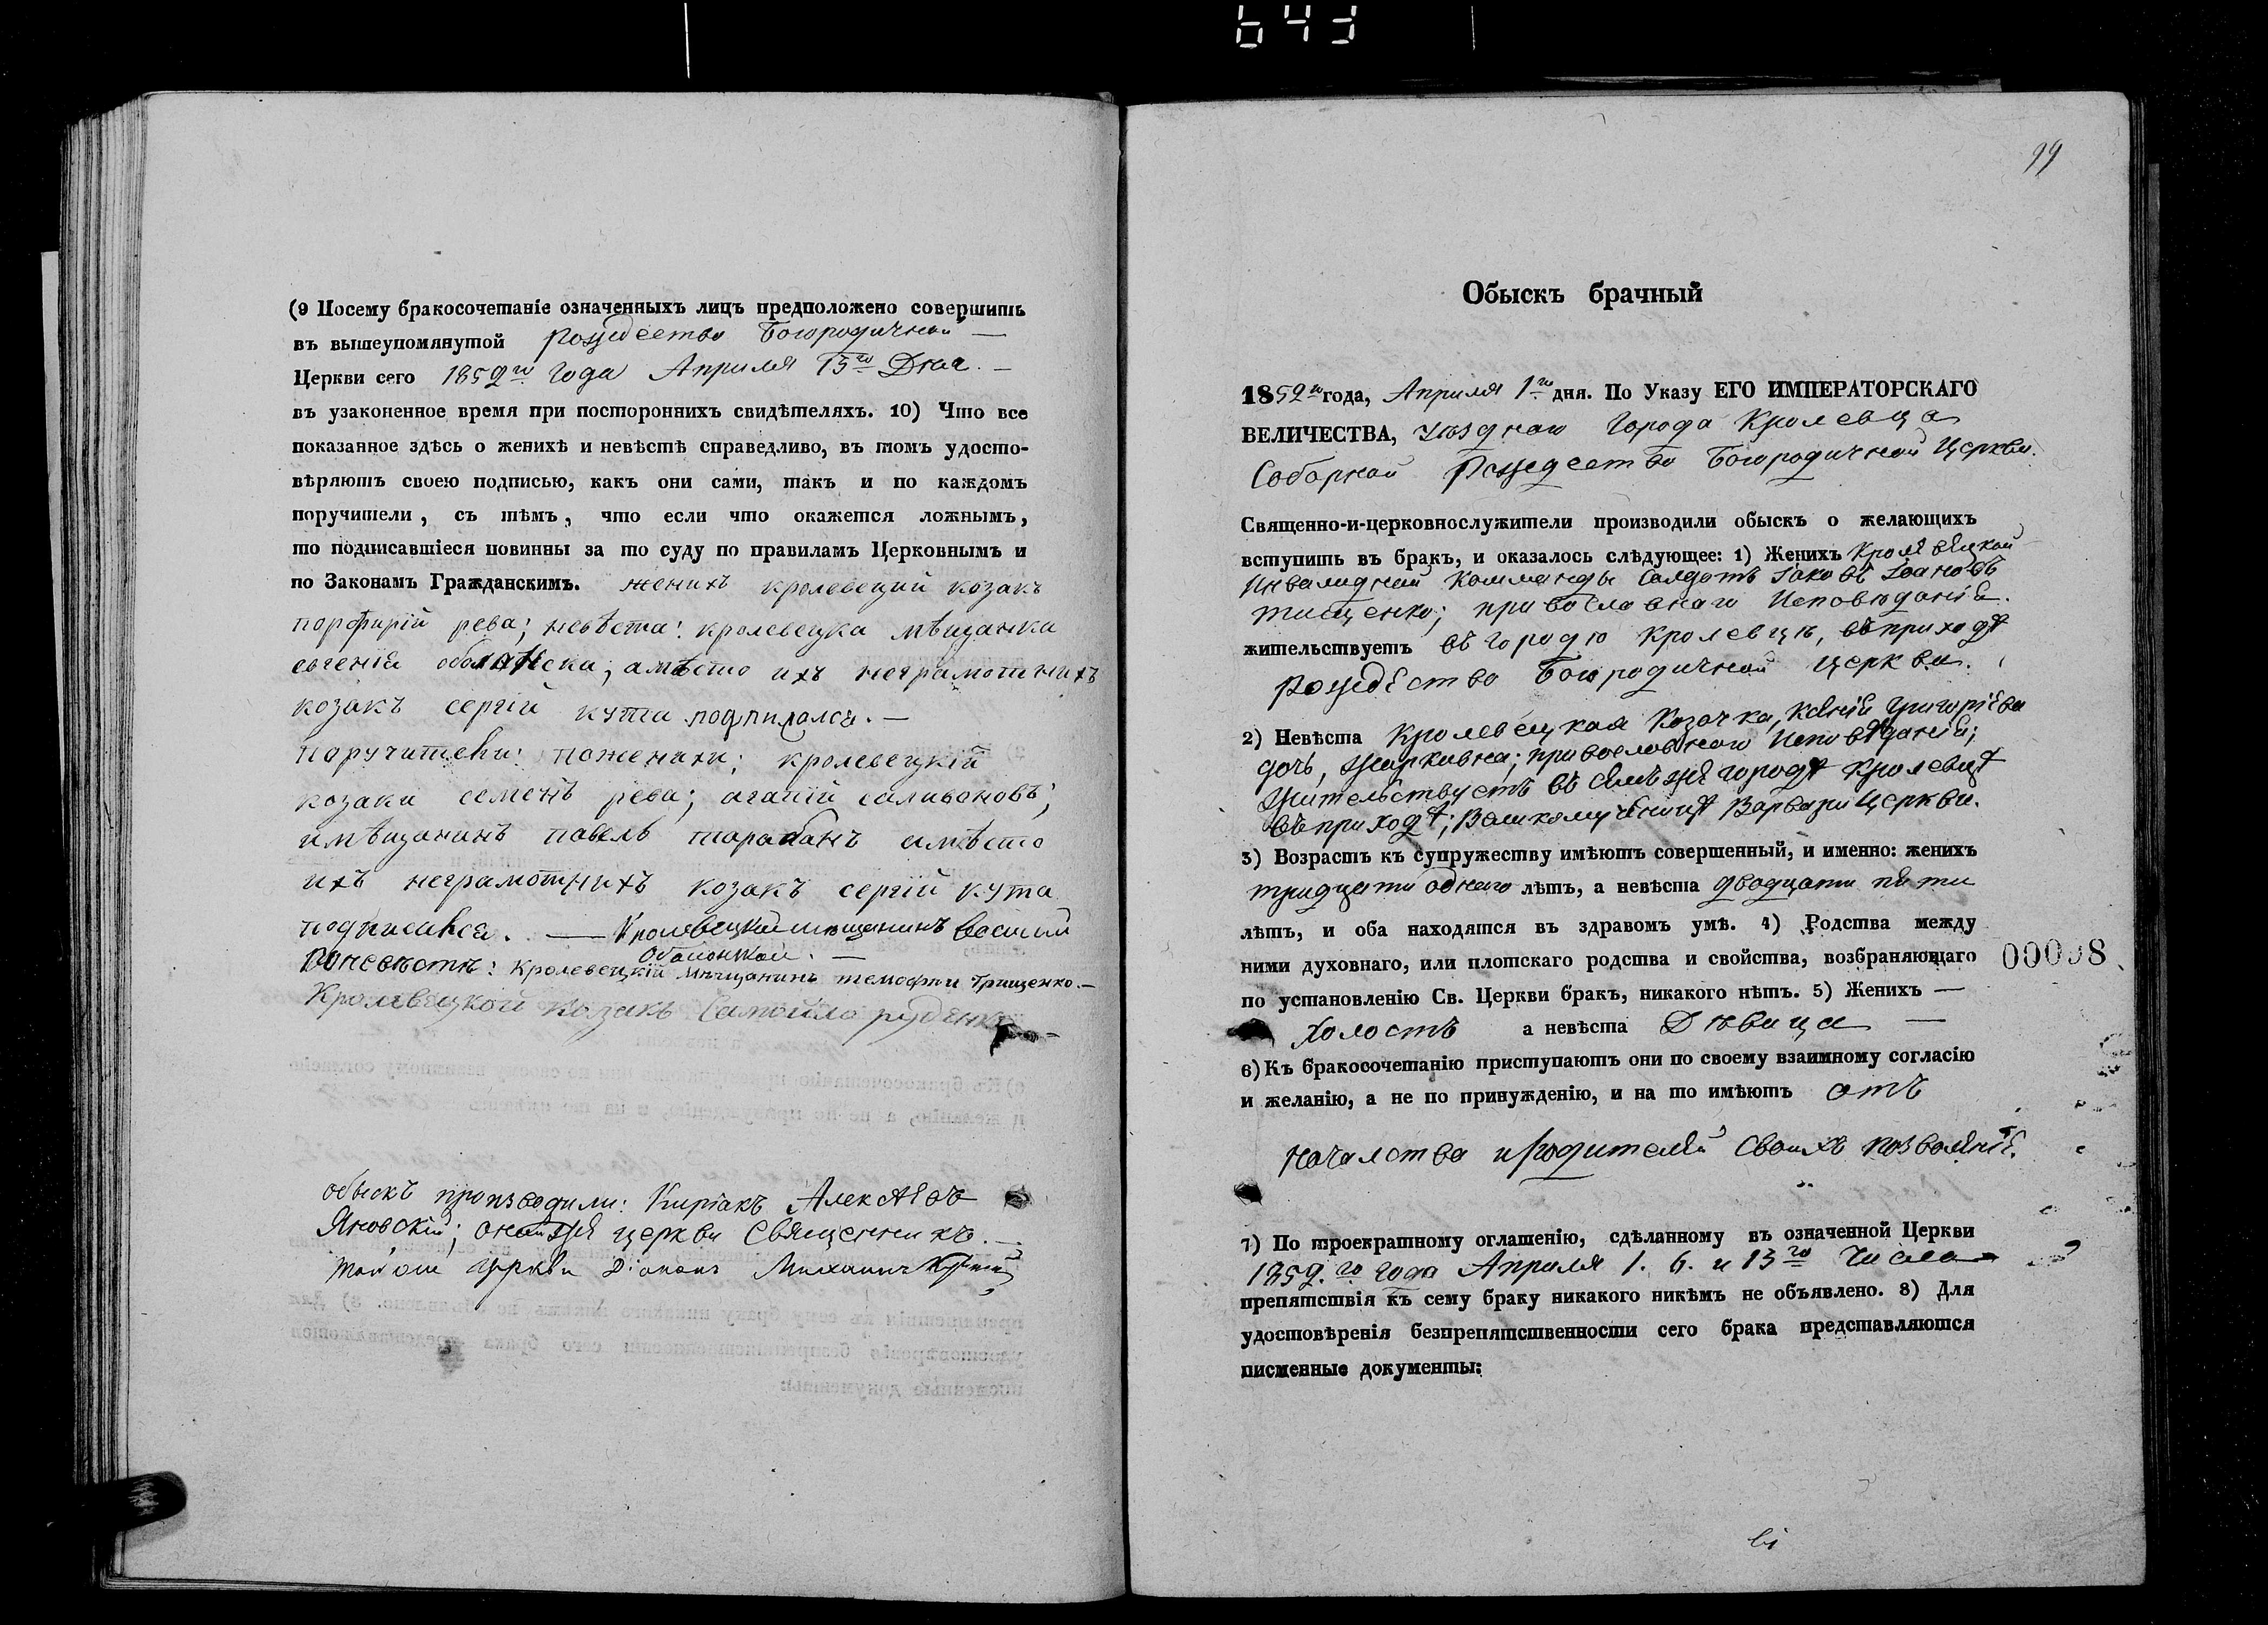 643
(9 Посему бракосочетаніе означенныхъ лицъ предположено совершить
въ вышеупомянутой рождество Богородичной —
Церкви сего 1852го года Апреля 15го Дня. —
въ узаконенное время при постороннихъ свидѣтеляхъ. 10) Что все
показанное здѣсь о женихѣ и невѣстѣ справедливо, въ томъ удосто-
вѣряютъ своею подписью, какъ они сами, такъ и по каждомъ
поручители, съ тѣмъ, что если что окажется ложнымъ,
то подписавшіеся повинны за то суду по правиламъ Церковнымъ и
по Законамъ Гражданскимъ. женихъ кролевеций козакъ
порфирій рева; невѣста: кролевецка мѣщанка
евгенія; амѣсто ихъ неграмотнихъ
козакъ сергій кута подписался. —
поручители: поженихи; кролевецкій
козаки семенъ рева; агапій саливоновъ;
имѣщанинъ павелъ тарабанъ амѣсто
ихъ неграмотнихъ козакъ сергій кута
подписался. — Кролевецкий мещанинъ василий
Поневѣсте: Кролевецкій Мѣщанинъ темофти Грищенко. —
Кролевецкой козакъ Самойло руденко
обыскъ производили: Киріакъ Алексѣевъ
Яновскій; оной же церкви Священникъ. —
той же церкви Діаконъ Михаилъ
99
Обыскъ брачный
1852го года, Апреля 1го дня. По Указу ЕГО ИМПЕРАТОРСКАГО
ВЕЛИЧЕСТВА, уѣзднаго Города Кролевца
Соборной Рождество Богородичной Церкви.
Священно-и-церковнослужители производили обыскъ о желающихъ
вступить въ бракъ, и оказалось слѣдующее: 1) Женихъ Кролевецкой
Инвалидней Комманды Салдатъ Іаковъ Іоановъ
тищенко; православнаго Исповѣданія.
жительствуетъ въ городѣ Кролевцѣ, въ приходѣ
рождество Богородичной церкви.
2) Невѣста Кролевецкая Козачка, Ксенія Григоріева
дочь, Жарковна; православнаго Исповѣданія;
Жительствуетъ въ семъ же городѣ Кролевцѣ
въ приходѣ; Великомученицѣ Варвари Церкви.
3) Возрастъ къ супружеству имѣютъ совершенный, и именно: женихъ
тридцати одного лѣтъ, а невѣста двадцати пяти
лѣтъ, и оба находятся въ здравомъ умѣ. 4) Родства между
ними духовнаго, или плотскаго родства и свойства, возбраняющаго
00098
по установленію Св. Церкви бракъ, никакого нѣтъ. 5) Женихъ —
Холостъ а невѣста Дѣвица —
6) Къ бракосочетанію приступаютъ они по своему взаимному согласію
и желанію, а не по принужденію, и на то имѣютъ отъ
началства и родителей своихъ позволеніе.
7) По троекратному оглашенію, сдѣланному въ означенной Церкви
1852.го года Апреля 1. 6. и 13го Числа
препятствія къ сему браку никакого никѣмъ не объявлено. 8) Для
удостовѣренія безпрепятственности сего брака представляются
писменные документы: